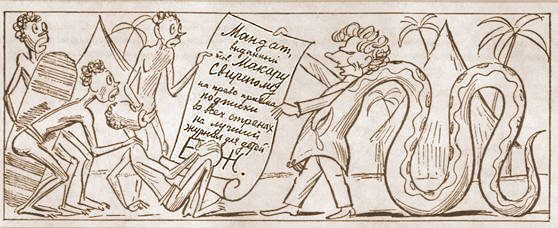 Мандат,
выданный
тов. Макару
Свирепому
на право приема
подписки
во всех странах
на лучший
журнал для детей
ЕЖ.